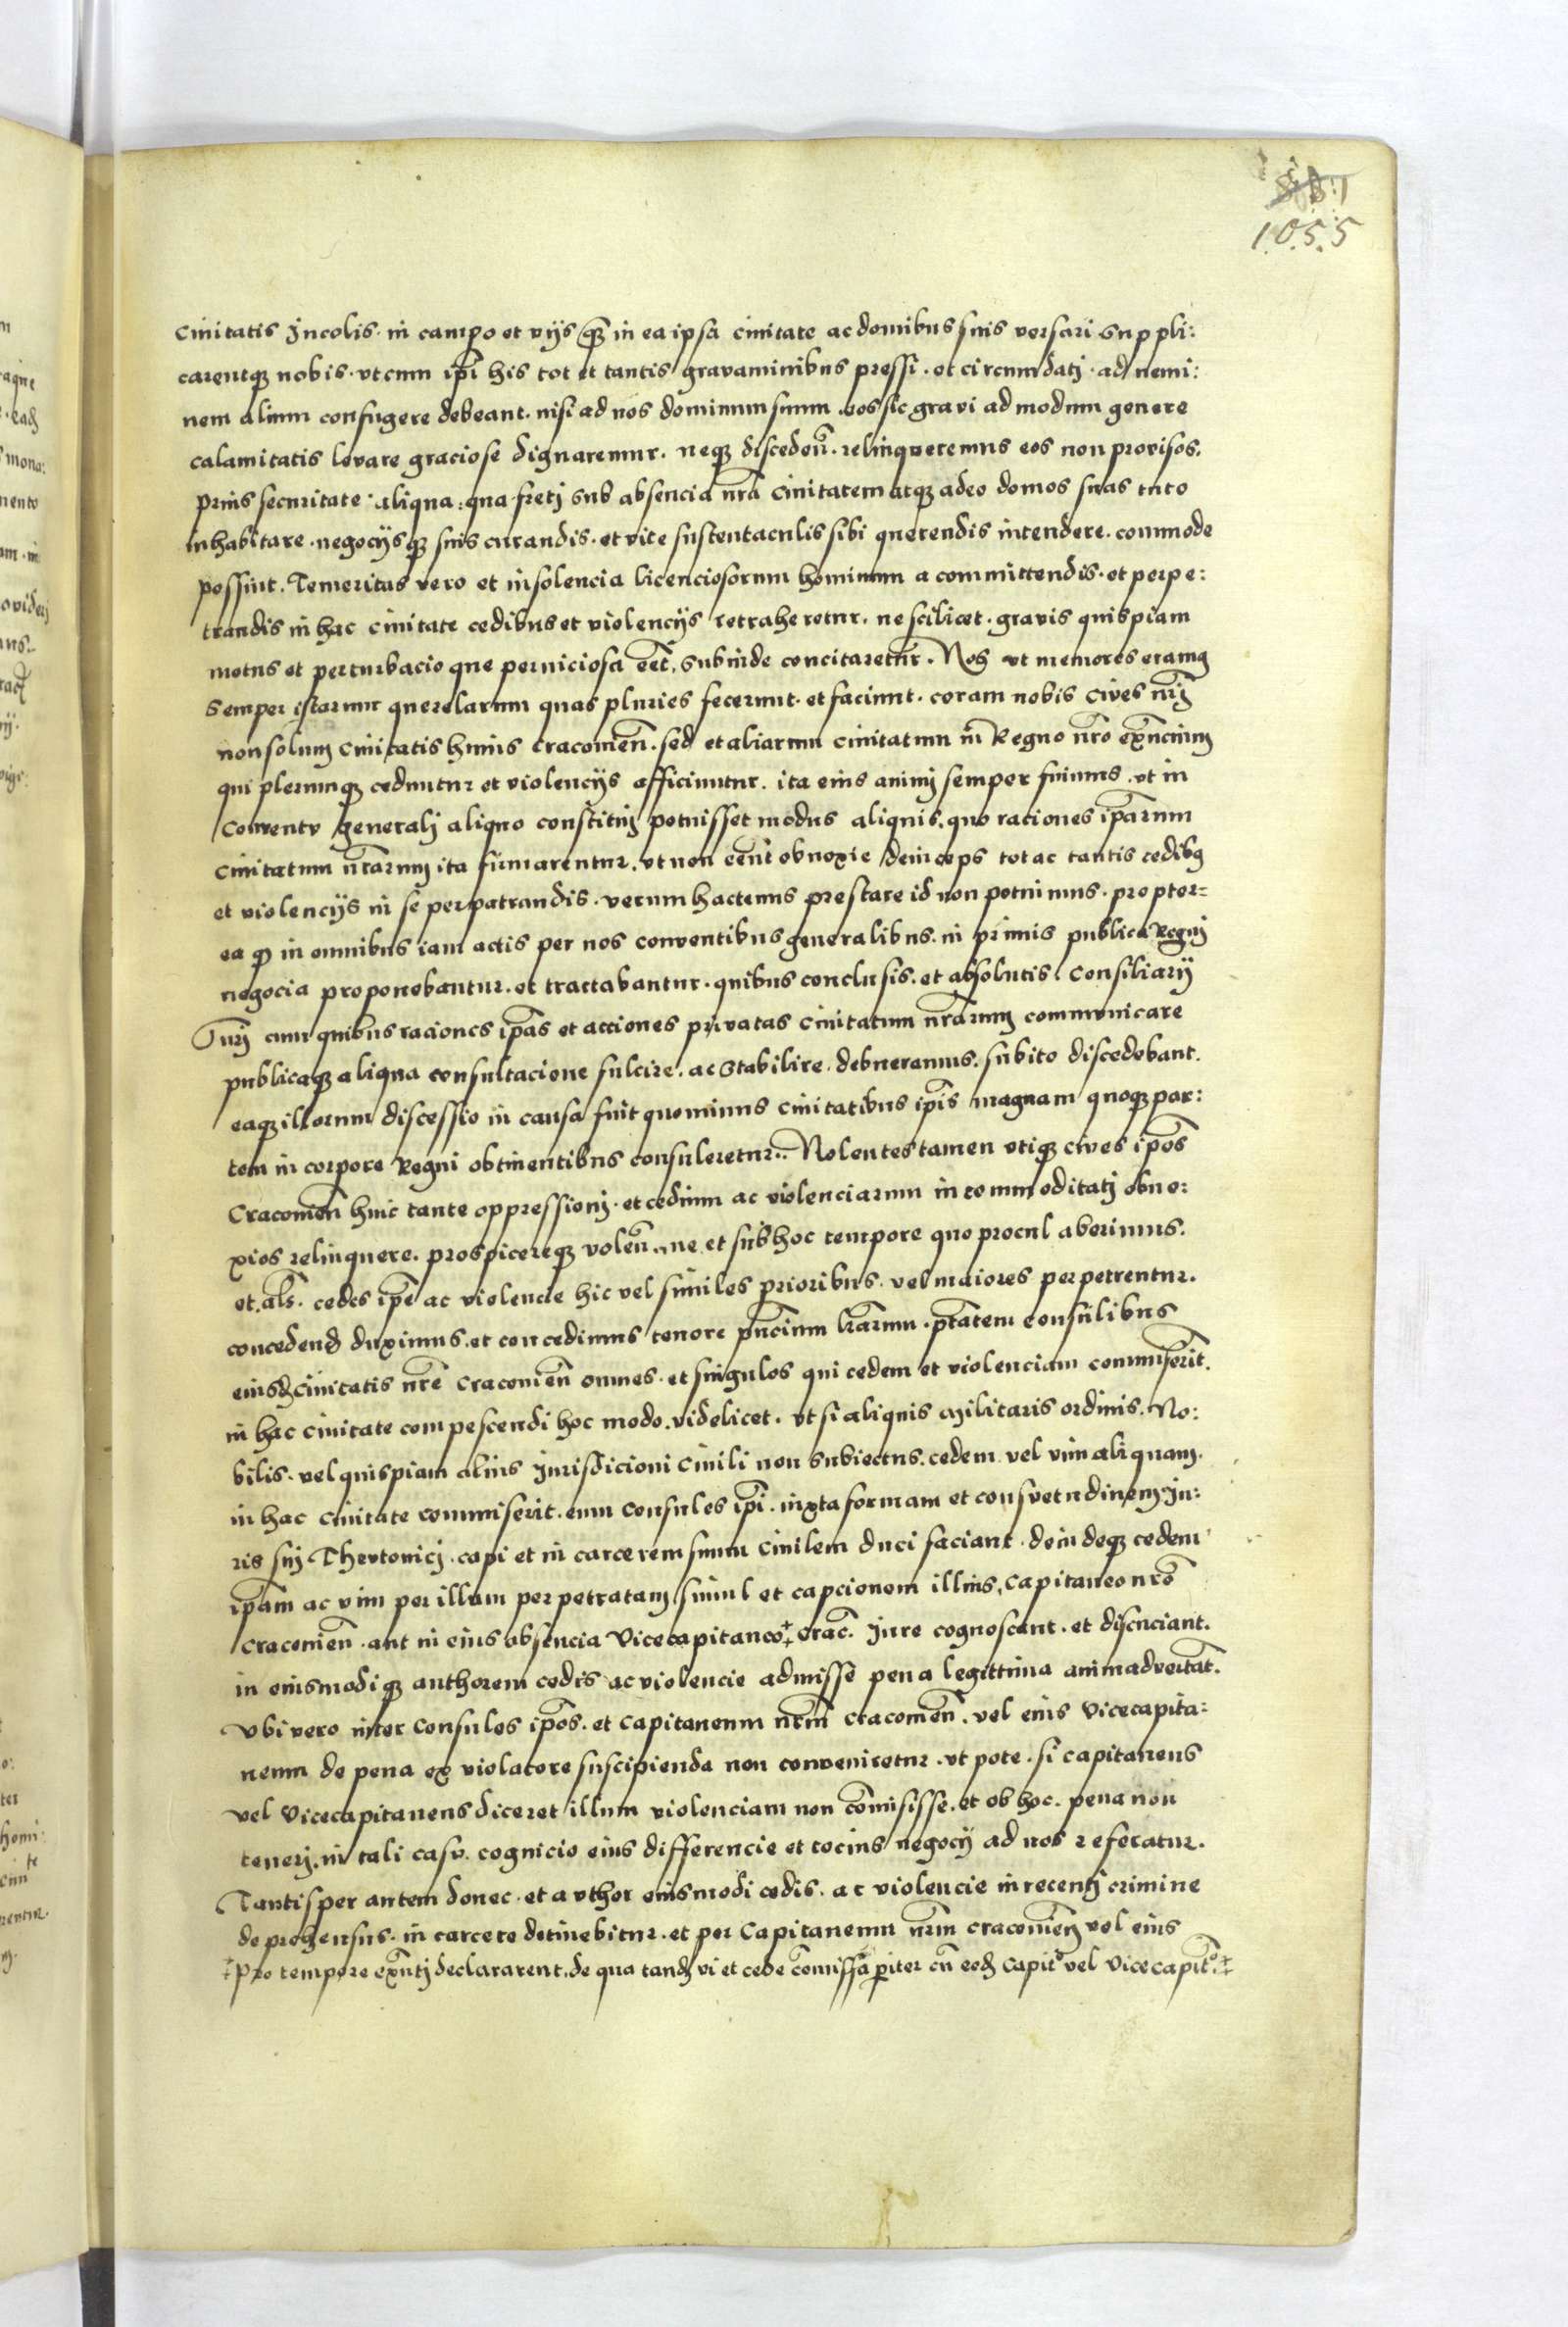 1055
Civitatis Incolis. in campo et vijs q̃ in ea ipsa civitate ac domibus suis versari suppli:
carentq; nobis. vt cum ip̃i his tot et tantis gravaminibus pressi. et circumdatj. ad nemi:
nem alium confugere debeant. nisi ad nos dominum suum. eos sic gravi ad modum genere
calamitatis levare graciose dignaremur. neq; disceden̄. relinqueremus eos non provisos.
prius securitate aliqua: qua fretj sub absencia nr̃a civitatem atq; adeo domos suas tuto
inhabitare. negocijsq; suis curandis. et vite sustentaculis sibi querendis intendere. commode
possint. Temeritas vero et insolencia licenciosorum hominum a committendis. et perpe:
trandis in hac civitate cedibus et violencijs retraheretur. ne scilicet. gravis quispiam
motus et perturbacio que perniciosa eēt, subinde concitaretur. Nos vt memores eramꝰ
semper istarum querelarum quas pluries fecerunt. et faciunt. coram nobis Cives nr̃j
non solum Civitatis huius Cracovien̄. sed et aliarum civitatum in Regno nr̃o exn̄cium
qui plerumq; ceduntur et violencijs afficiuntur. ita eius animj semper fuimus. vt in
Conventv generalj aliquo constituj potuisset modus aliquis. quo raciones ip̃arum
civitatum nr̃arum ita firmarentur. vt non eēnt obnoxie deinceps tot ac tantis cedibꝰ
et violencijs in se perpatrandis. verum hactenus prestare id non potuimus. propter=
ea qp in omnibus iam actis per nos conventibus generalibus. in primis publica Regnj
negocia proponebantur. et tractabantur. quibus conclusis. et absolutis. Consiliarij
nr̃j cum quibus raciones ip̃as et acciones privatas civitatum nr̃arum communicare
publicaq; aliqua consultacione fulcire. ac stabilire. debueramus. subito discedebant.
eaq; illorum discessio in causa fuit quominus civitatibus ip̃is magnam quoq; par:
tem in corpore Regni obtinentibus consuleretur.. Nolentes tamen vtiq; cives ip̃os
Cracovien̄ huic tante oppressionj. et cedium ac violenciarum in commoditatj obno:
xios relinquere. prospicereq; volen̄. ne et sub hoc tempore quo procul aberimus.
et al̃s. cedes ip̃e ac violencie hic vel similes prioribus. vel maiores perpetrentur.
concedend̄ duximus. et concedimus tenore pn̄cium lr̃arum. ptãtem consulibus
eiusd̄ civitatis nr̃e Cracovien̄ omnes. et singulos qui cedem et violenciam commiserit.
in hac civitate compescendi hoc modo. videlicet. vt si aliquis militaris ordinis. No:
bilis. vel quispiam alius Jurisdicioni Civili non subiectus. cedem vel vim aliquam.
in hac civitate commiserit. eum Consules ip̃i. iuxta formam et consvetudinem: Ju:
ris suj Thevtonicj. capi et in carcerem suum Civilem duci faciant. deindeq; cedem
ip̃am ac vim per illum perpetratam simul et capcionem illius, Capitaneo nr̃o
Cracovien̄. aut in eius absencia Vicecapitaneo ‡ Crac̄. Jure cognoscant. et discuciant.
in eiusmodiq; authorem cedis ac violencie admisse pena legittima animadvertāt.
Vbi vero inter Consules ip̃os. et Capitaneum nr̃um Cracovien̄. vel eius Vicecapita:
neum de pena ex violatore suscipienda non conveniretur. vt pote. si capitaneus
vel Vicecapitaneus diceret illum violenciam non cōmisisse. et ob hoc. pena non
tenerj. in tali casv. cognicio eius differencie et tocius negocij ad nos referatur.
Tantisper autem donec. et avthor eiusmodi cedis. ac violencie in recentj crimine
deprehensus. in carcere detinebitur. et per Capitaneum nr̃um Cracovien̄ vel eius
‡ Pro tempore exn̄tj declararent. de qua tand̄ vi et cede cōmissa pariter cū eod̄ Capitº vel Vicecapitº. ‡